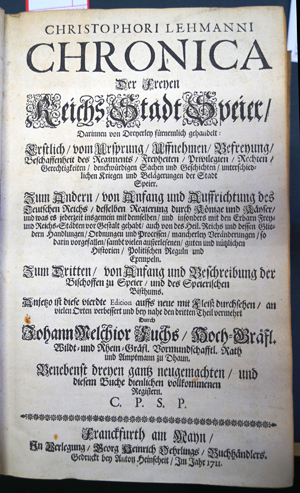 CHRISTOPHORI LEHMANNI
CHRONICA
Der Freyen
Reichs Stadt Speier/
Darinnen von Dreyerley fürnemlich gehandelt:
Erstlich/ vom Ursprung/ Uffnehmen/ Befreyung/
Beschaffenheit des Regiments/ Freyheiten/ Privilegien/ Rechten/
Gerechtigkeiten/ denckwürdigen Sachen und Geschichten/ unterschied-
lichen Kriegen und Belägerungen der Stadt
Speier.
Zum Andern/ von Anfang und Auffrichtung des
Teutschen Reichs/ desselben Regierung durch Könige und Käyser/
und was es jederzeit insgemein mit demselben/ und insonders mit den Erbarn Frey-
und Reichs-Städten vor Gestalt gehabt/ auch von des Heil. Reichs und dessen Glie-
dern Handlungen/ Ordnungen und Processen/ mancherley Veränderungen/ so
darin vorgefallen/ sambt vielen außerlesenen/ guten und nützlichen
Historien/ Politischen Reguln und
Exempeln.
Zum Dritten/ von Anfang und Beschreibung der
Bischoffen zu Speier/ und des Speierischen
Bisthums.
Anjetzo ist diese vierdte Edition auffs neue mit Fleiß durchsehen/ an
vielen Orten verbessert und bey nahe den dritten Theil vermehrt
Durch
Johann Melchior Fuchs/ Hoch-Gräfl.
Wild- und Rhein-Gräfl. Vormundschafftl. Rath
und Amptmann zu Dhaun.
Nebenst dreyen gantz neugemachten/ und
diesem Buche dienlichen vollkommenen
Registern.
C. P. S. P.
Franckfurth am Mayn/
In Verlegung/ Georg Heinrich Oehrlings/ Buchhändlers.
Gedruckt bey Anton Heinscheit/ Im Jahr 1711.